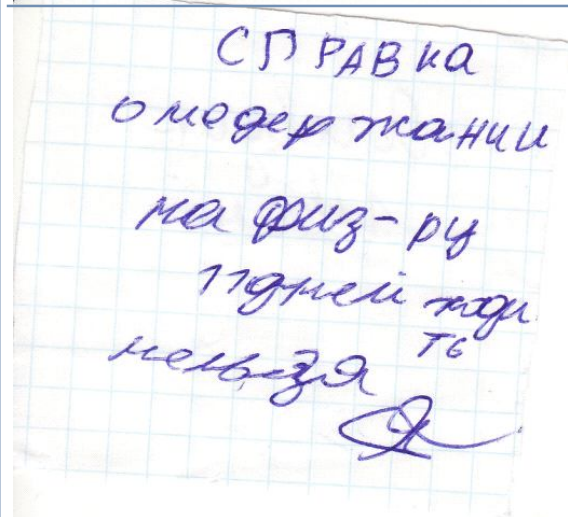 СПРАВКА
о медержании
на физ-ру
11 дней ходи
ть
нельзя